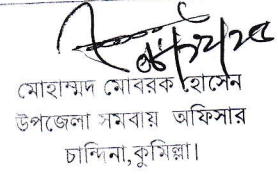 মোহাম্মদ মোবরক হোসেন
উপজেলা সমবায় অফিসার
চান্দিনা, কুমিল্লা।